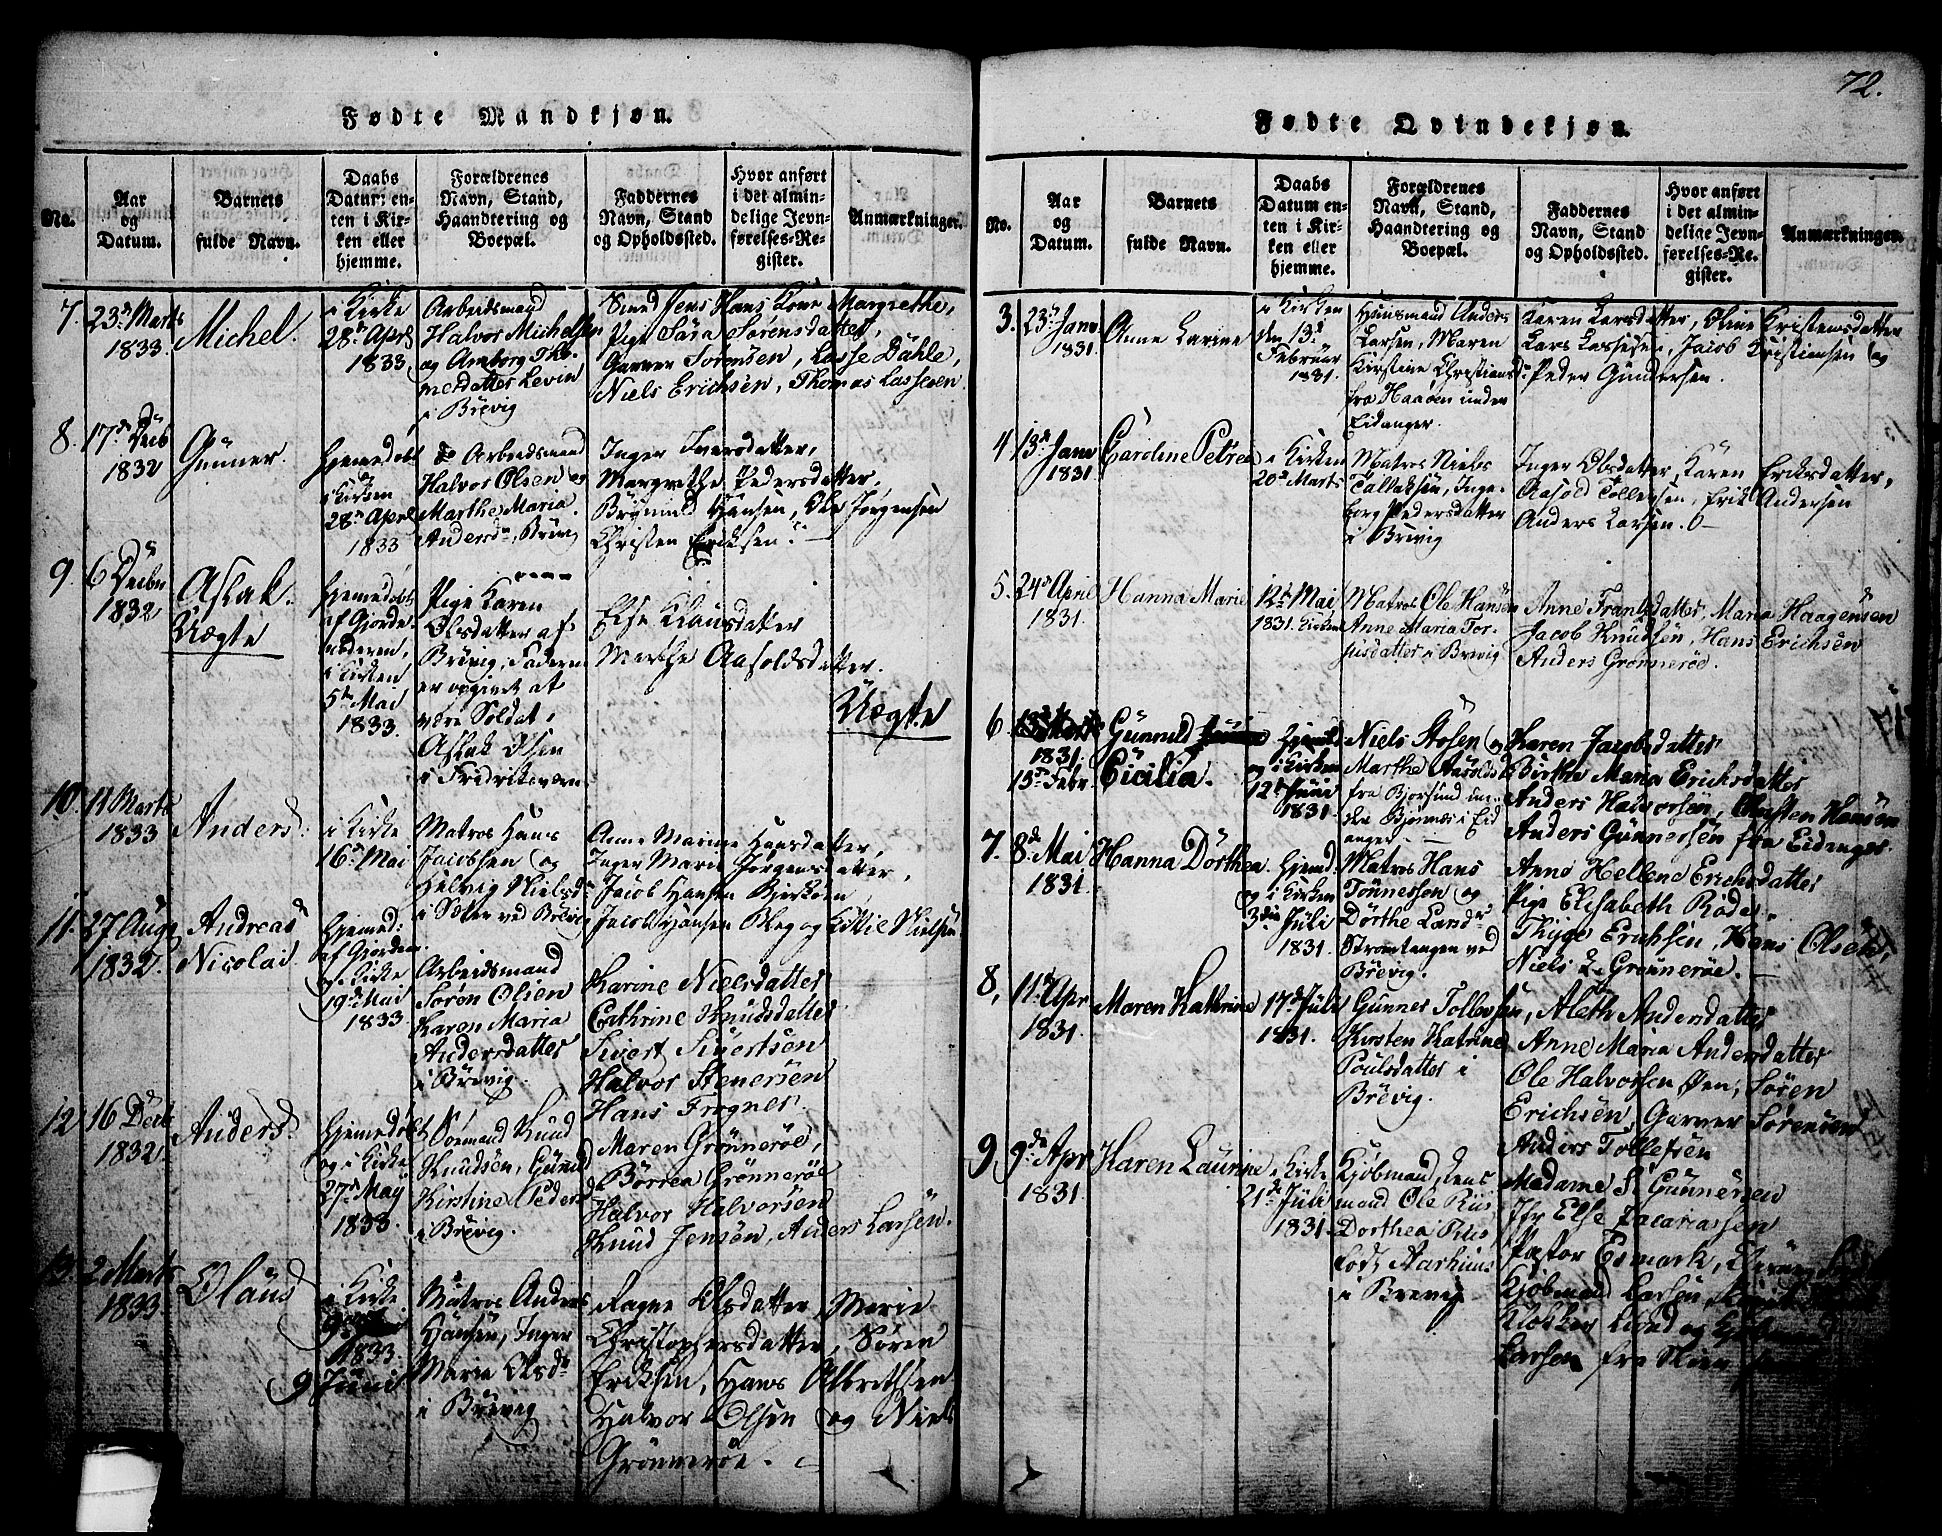 72.
Fødte Mandkjøn.
No.
Aar
og
Datum.
Barnets
fulde Navn.
Daabs
Datum en-
ten i Kir-
ken eller
hjemme.
Forældrenes
Navn, Stand,
Haandtering og
Boepæl.
Faddernes
Navn, Stand
og Opholdssted.
Hvor anført
i det almin-
delige Jevn-
førelses-Re-
gister.
Anmærkninger.
7. 23de Marts
1833.
Michel.
i Kirke
28de April
1833
Arbeidsmand
Halvor Michelsen
og Amborg Tho-
mesdatter Levin
i Brevig
Smed Jens Hans Kone Margrethe,
Pige Sara Sørensdatter,
Garner Sørensen, Lasse Dahle,
Niels Erichsen, Thomas Lassesen.
8. 17de Decb
1832
Gunner.
Hjemedøbt
i Kirken
28de April
1833
Arbeidsmand
Halvor Olsen og
Marthe Maria
Andersdr, Brevig
Inger Iversdatter,
Margrethe Pedersdatter,
Brynild Hansen, Ole Jørgensen
Christen Eriksen.
9. 6 Decbr
1832
Aslak.
Uægte
Hjemedøbt
af Gjorde-
moderen,
i Kirken
5te Mai
1833.
Pige Karen
Olsdatter af
Brevig, Faderen
er opgivet at
være Soldat,
Aslak Olsen
i Fredriksværn
Else Klausdatter
Marthe Aasoldsdatter.
Uægte
10. 11 Marts
1833
Anders.
i Kirke
16de Mai
Matros Hans
Jacobsen og
Helvig Nielsdr
i Sæter ved Brevig
Anne Marine Hansdatter,
Inger Marie Jørgensdatter,
Jacob Hansen Birkøen
Jacob Hansen Bleg og Killie Nielsen
11. 27 Aug
1832.
Andreas
Nicolai.
Hjemed:
af Gjordem.
og i Kirke
19de Mai
1833
Arbeidsmand
Søren Olsen
Karen Maria
Andersdatter
i Brevig.
Karine Nielsdatter
Cathrine Knudsdatter
Sivert Sivertsen
Halvor Stenersen
Hans Frogner.
12 16 Decb
1832.
Anders.
Hjemedøbt
og i Kirke
27de Maj
1833.
Sømand Knud
Knudsen, Gunild
Kirstine Pedersd
i Brevig.
Maren Grønnerøe,
Børrea Grønnerøe
Halvor Halvorsen
Knud Jensen, Anders Larsen.
13. 2 Marts
1833.
Olaus
i Kirke
1833
9 Juni
Matros Anders
Hansen, Inger
Maria Olsdr
i Brevig
Ragne Olsdatter, Marie
Christophersdatter, Søren
Eriksen, Hans Albretsen
Halvor Olsen og Niels
Grønnerøe.
Fødte Qvindekjøn.
No.
Aar
og
Datum.
Barnets
fulde Navn.
Daabs
Datum en-
ten i Kir-
ken eller
hjemme.
Forældrenes
Navn, Stand,
Haandtering og
Boepæl.
Faddernes
Navn, Stand
og Opholdssted.
Hvor anført
i det almin-
delige Jevn-
førelses-Re-
gister.
Anmærkninger.
3. 23de Janv
1831.
Anne Larine
i Kirken
den 13de
Februar
1831.
Huusmand Anders
Larsen, Maren
Kirstine Christiansdr
fra Haaøen under
Eidanger.
Karen Larsdatter, Oline Kristensdatter
Lars Lassesen, Jacob Kristiansen og
Peder Gundersen.
4 13de Janv
1831.
Caroline Petrea
i Kirken
20de Marts
Matros Niels
Tallaksen, Inge-
borg Pedersdatter
i Brevig
Inger Olsdatter, Karen Eriksdatter,
Aasold Tollefsen, Erik Andersen
Anders Larsen.
5. 24de April
1831.
Hanna Marie
12te Mai
1831. Kirken
Matros Ole Hansen
Anne Maria Tor-
jusdatter i Brevig
Anne Frantsdatter, Maria Haagensen
Jacob Knudsen, Hans Erichsen
Anders Grønnerøe.
6
1831.
15de Febr.
Gunnild
Cicilia.
Hjemd
og i Kirken
12te Juni
1831.
Niels Olsen og
Marthe Aasoldsd
fra Bjorsund un-
der Bjønnes i Eid
anger.
Karen Jacobsdatter
Birthe Maria Erichsdatter
Anders Halvorsen, Christen Hansen
Anders Gunnersen fra Eidanger.
7. 8de Mai
1831.
Hanna Dorthea.
Hjemd.
og i Kirken
3die Juli
1831.
Matros Hans
Tønnessen og
Dorthe Larsdr,
Strømtangen ved
Brevig.
Anne Hellene Erichsdatter
Pige Elisabeth Rode.
Thyge Erichsen, Hans Olsen,
Niels L. Grønnerøe.
8, 11te Apr
1831.
Maren Kathrine
17de Juli
1831.
Gunner Tollevsen,
Kirsten Katrine
Poulsdatter i
Brevig.
Aleth Andersdatter
Anne Maria Andersdatter
Ole Halvorsen Øen, Søren
Erichsen, Garner Sørensen
Anders Tollefsen
9, 9de Apr
1831.
Karen Laurine
i Kirke
21de Juli
1831.
Kjøbmand, Lens
mand Ole Riis
Dorthea Riis
født Aarhuus
i Brevig
Madame S. Gunnersen
Jfr Else Zacariassen
Pastor Esmark,
Kjøbmand Larsen,
Klokker Lund og Kjøbmand
Larsen fra Skien